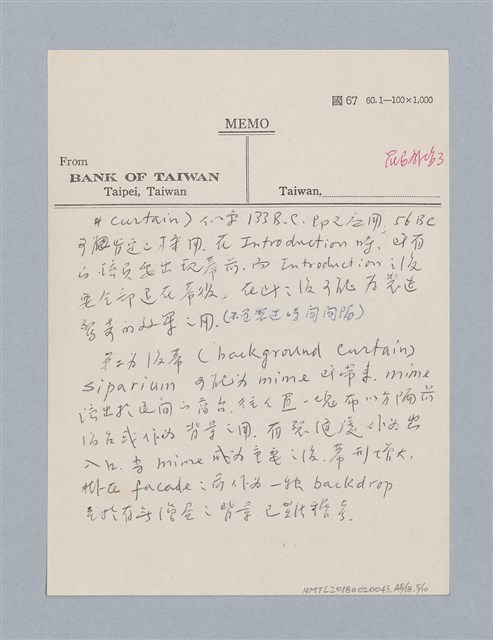 國 67 60.1—100×1,000
MEMO
From
BANK OF TAIWAN
Taipei, Taiwan
Taiwan,
curtain) 133 B.C. 即已应用, 56 BC
可 肯定已採用. 在 Introduction 時, 所有
的演員要出現幕前, 而 Introduction 之後
要全部退在幕後, 在此之後可能为製造
驚奇的效果之用. (不是製造時間間隔)
第二为後幕 (background curtain)
siparium 可能为 mime 所帶来. mime
演出於 的高台, 往々 一塊布以分隔前
後台或作为背景之用. 有裂縫處作为出
入口. 当 mime 成为重要之後, 幕形增大,
掛在 facade 之前作为一块 backdrop
至於有無 之背景已無
NMTL20180020043.